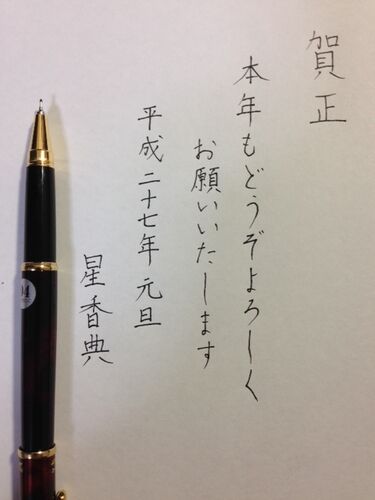 賀正
本年もどうぞよろしく
お願いいたします
平成二十七年 元旦
星香典